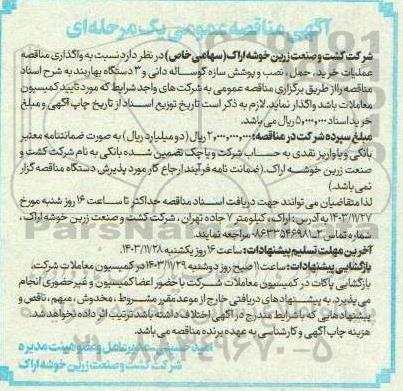 آگهی مناقصه عمومی یک مرحله‌ای
شرکت کشت و صنعت زرین خوشه اراک (سهامی خاص) در نظر دارد نسبت به واگذاری مناقصه
عملیات خرید، حمل، نصب و پوشش سازه گوساله دانی و ۳ دستگاه بهاربند به شرح اسناد
مناقصه را از طریق برگزاری مناقصه عمومی به شرکت های واجد شرایط که مورد تایید کمیسیون
معاملات باشد واگذار نماید. لازم به ذکر است تاریخ توزیع اسناد از تاریخ چاپ آگهی و مبلغ
خرید اسناد ۵،۰۰۰،۰۰۰ ریال می باشد.
مبلغ سپرده شرکت در مناقصه: ۲،۰۰۰،۰۰۰،۰۰۰ ریال (دو میلیارد ریال) به صورت ضمانتنامه معتبر
بانکی و یا واریز نقدی به حساب شرکت و یا چک تضمین شده بانکی به نام شرکت کشت و
صنعت زرین خوشه اراک. (ضمانت نامه فرآیند ارجاع کار مورد پذیرش دستگاه مناقصه گزار
نمی باشد)
لذا متقاضیان می توانند جهت دریافت اسناد مناقصه حداکثر تا ساعت ۱۶ روز شنبه مورخ
۱۴۰۳/۱۱/۲۷ به آدرس: اراک، کیلومتر ۷ جاده تهران، شرکت کشت و صنعت زرین خوشه اراک،
شماره تماس ۲-۰۸۶۳۳۵۴۶۹۸۱ مراجعه نمایند.
آخرین مهلت تسلیم پیشنهادات: ساعت ۱۶ روز یکشنبه ۱۴۰۳/۱۱/۲۸.
بازگشایی پیشنهادات: ساعت ۱۱ صبح روز دوشنبه ۱۴۰۳/۱۱/۲۹ در کمیسیون معاملات شرکت.
بازگشایی پاکات در کمیسیون معاملات شرکت با حضور اعضا کمیسیون و غیر حضوری انجام
می پذیرد. به پیشنهادهای دریافتی خارج از موعد مقرر مشروط، مخدوش، مبهم، ناقص و
پیشنهادهایی که با شرایط مندرج در آگهی اختلاف داشته باشد ترتیب اثر داده نخواهد شد.
هزینه چاپ آگهی و کارشناسی به عهده برنده مناقصه می باشد.
مدیرعامل و عضو هیئت مدیره
شرکت کشت و صنعت زرین خوشه اراک